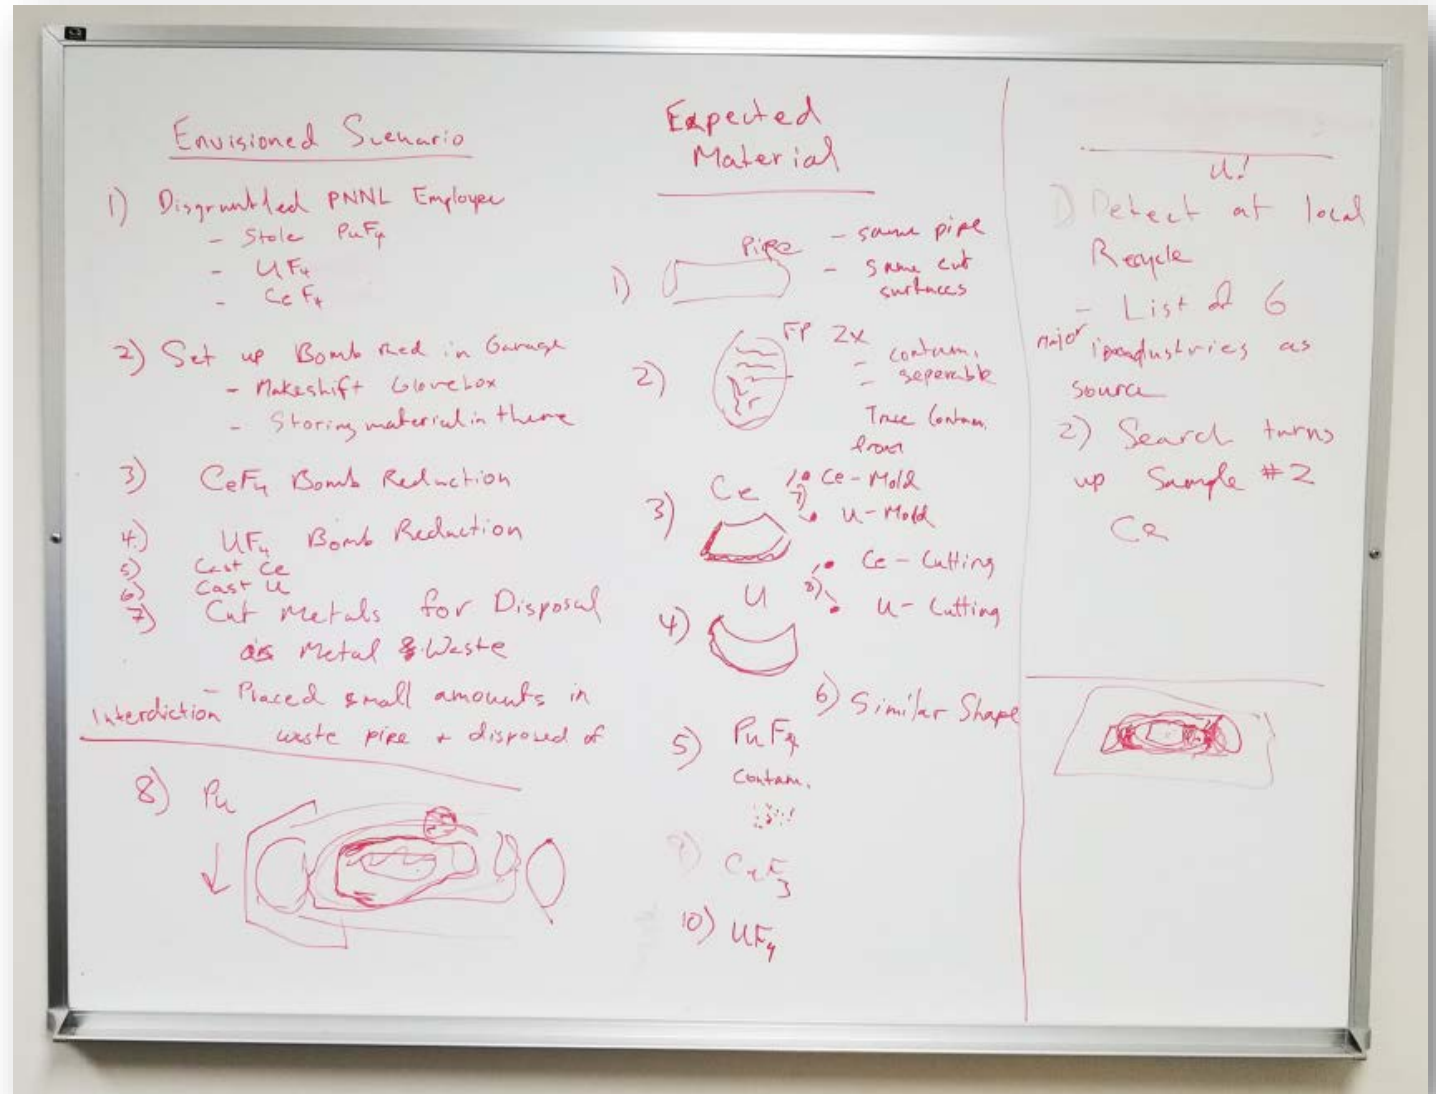 Envisioned Scenario
1) Disgruntled PNNL Employee
- Stole PuF4
- UF4
- CeF4
2) Set up Bomb Red in Garage
- Makeshift Glovebox
- Storing material in there
3) CeF4 Bomb Reduction
4) UF4 Bomb Reduction
5) Cast Ce
6) Cast U
7) Cut Metals for Disposal
as Metal & Waste
- Placed small amounts in
waste pipe + disposed of
Interdiction
8) Pu
Expected
Material
1) Pipe - same pipe
- same cut
surfaces
2) FP 2x
- contam.
- seperable
Trace Contam.
from
3) Ce
7) Ce - Mold
U - Mold
4) U
8) Ce - Cutting
U - Cutting
5) PuF4
Contam.
6) Similar Shape
9) CeF3
10) UF4
U!
1) Detect at local
Recycle
- List of 6
major industries as
source
2) Search turns
up Sample #2
Ce